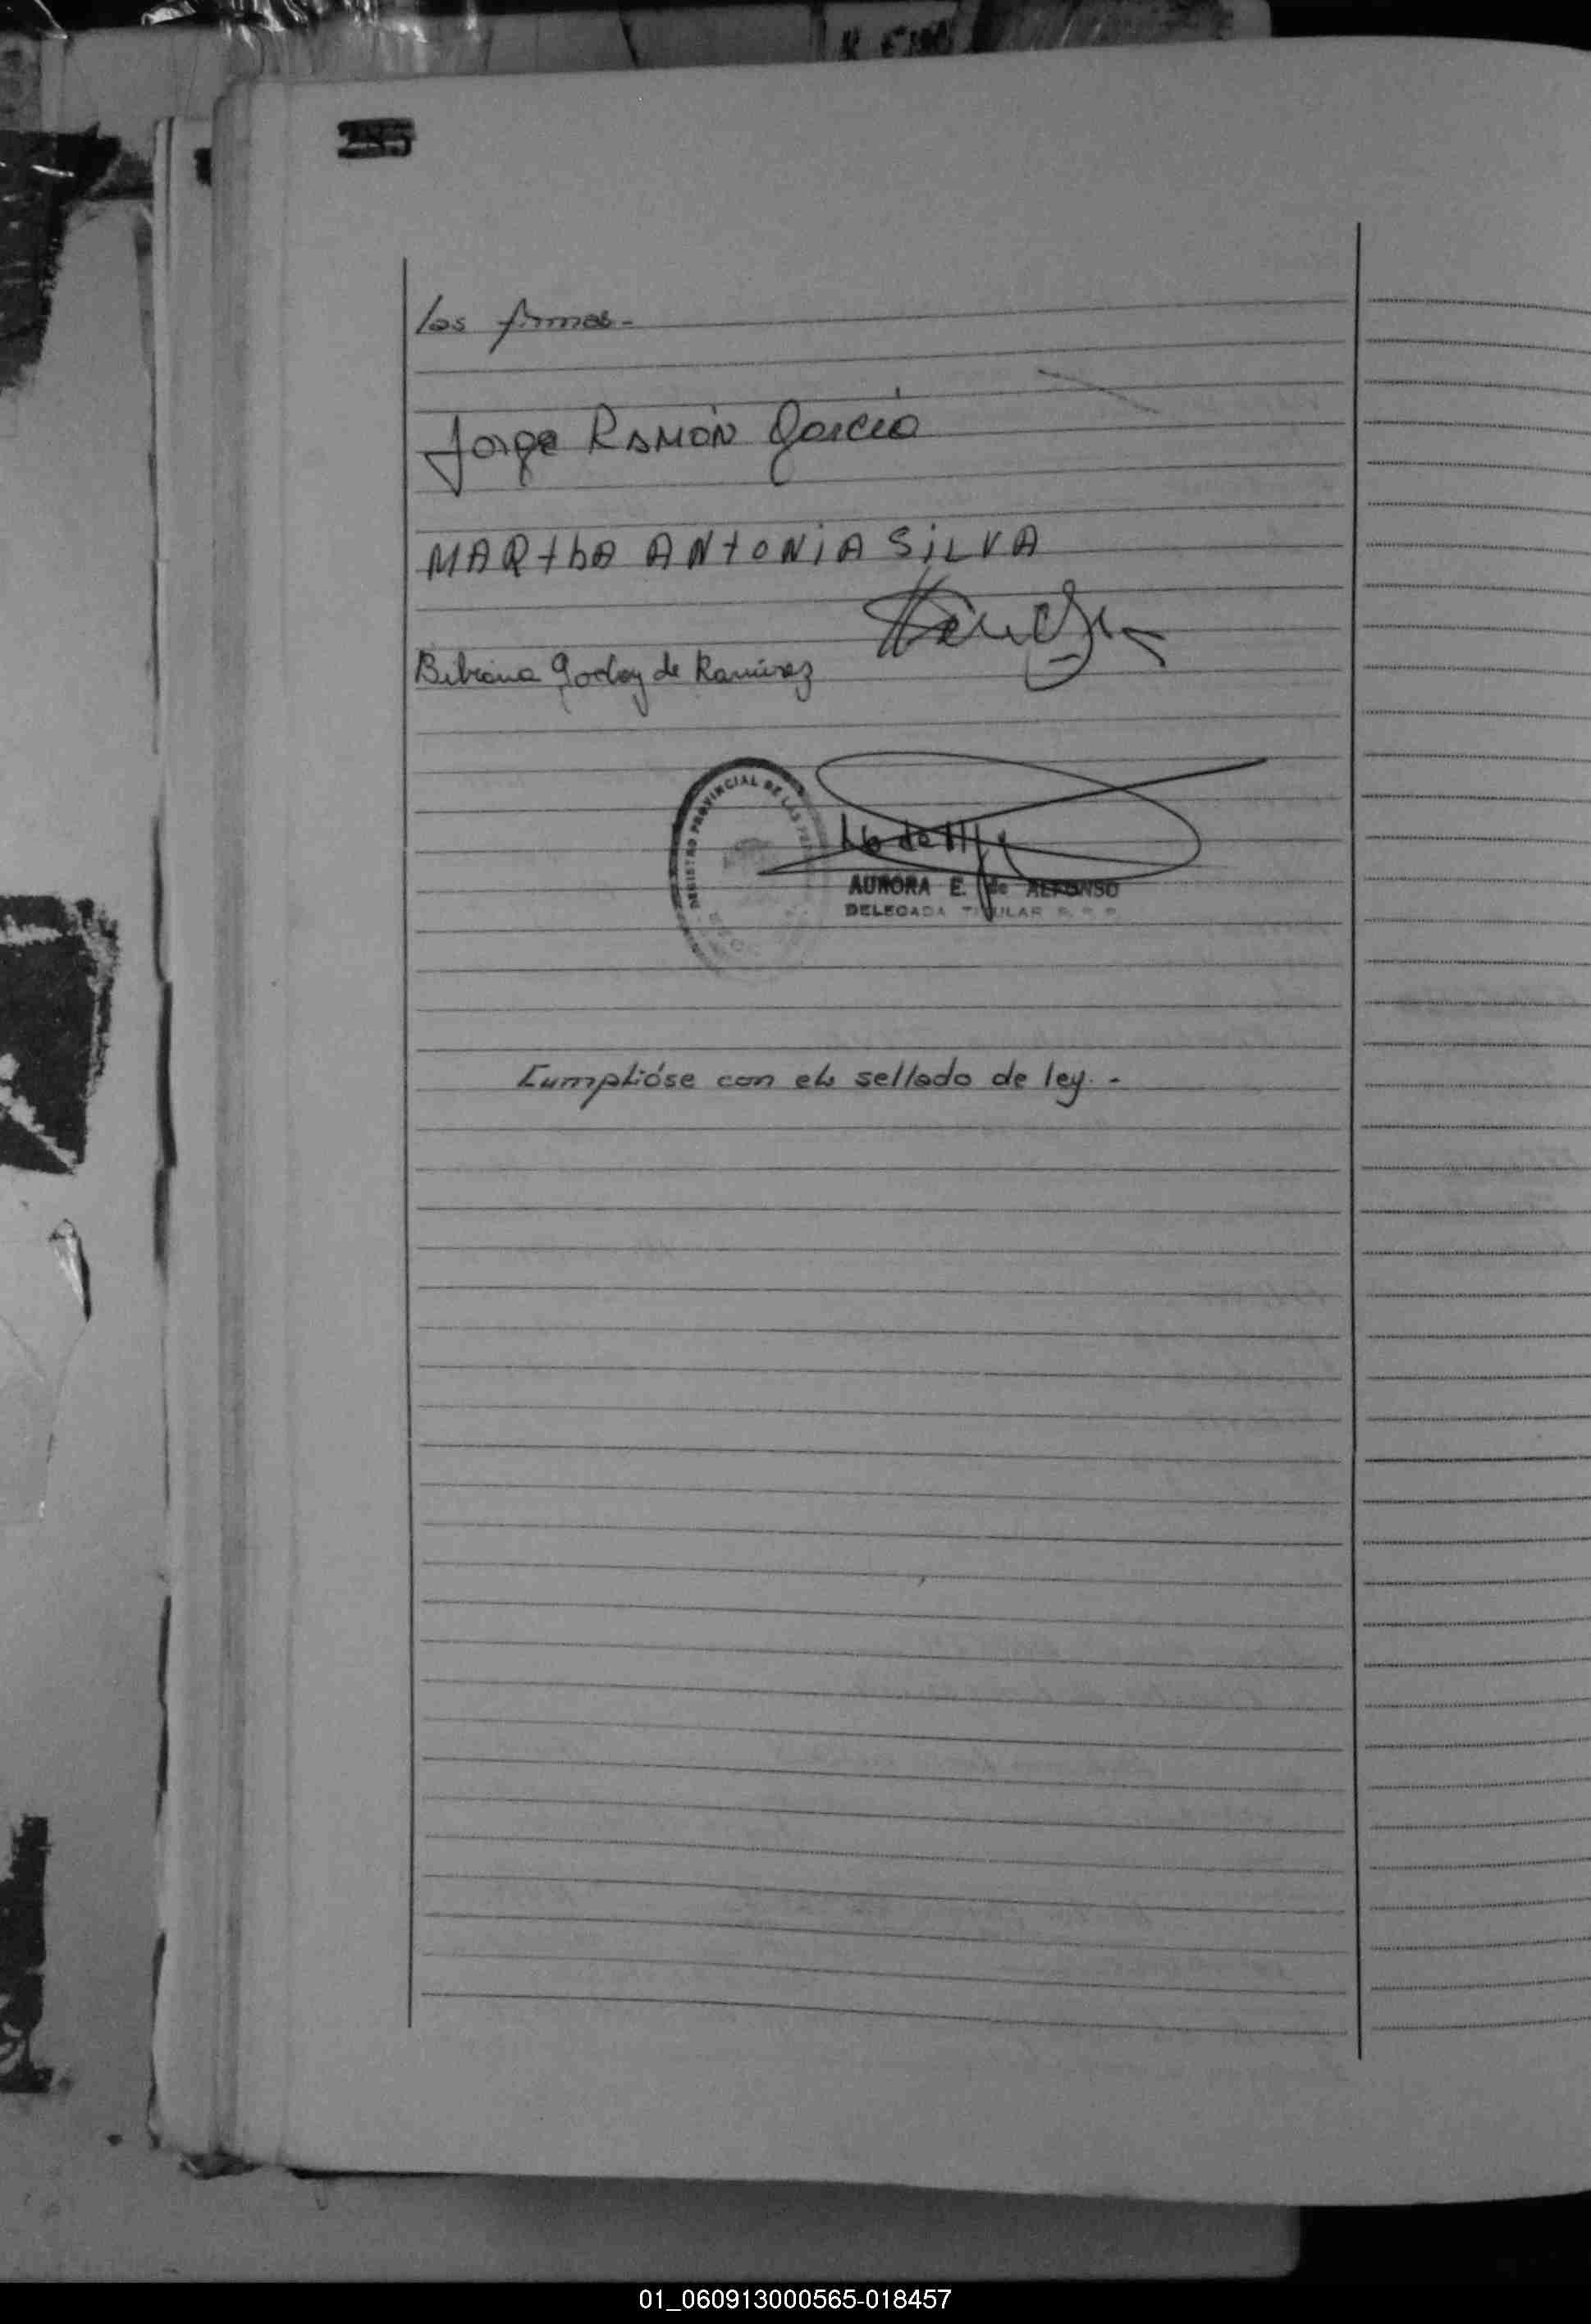 las firmas.-
Jorge Ramón García
MARthA ANtONiA SiLVA
Bibiana Godoy de Ramírez
REGISTRO PROVINCIAL DE LAS
AURORA E. de ALFONSO
DELEGADA TITULAR R. P. P.
Cumplióse con el sellado de ley.-
01_060913000565-018457